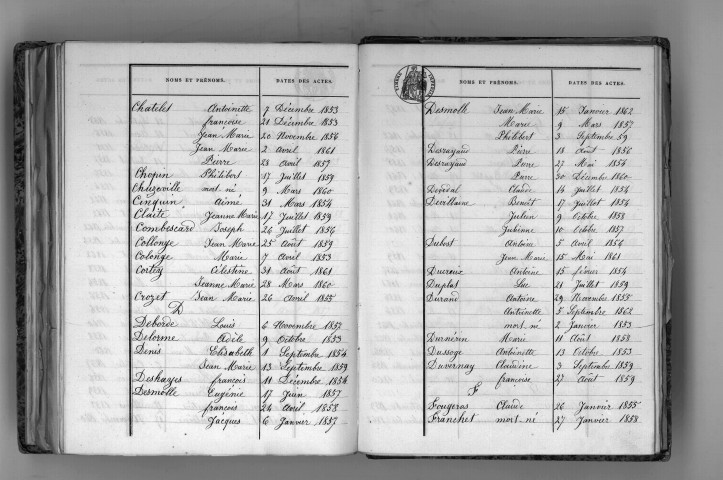 NOMS ET PRÉNOMS. DATES DES ACTES.
Chatelet Antoinette 7 Décembre 1853
françoise 21 Décembre 1853
Jean Marie 20 Novembre 1856
Jean Marie 2 avril 1861
Pierre 23 avril 1857
Chopin Philibert 17 Juillet 1859
Chuzeville mort né 9 Mars 1860
Cinquin aimé 31 Mars 1854
Claite Jeanne Marie 17 Juillet 1859
Combescard Joseph 24 Juillet 1856
Collonge Jean Marie 25 août 1859
Colonge Marie 7 avril 1853
Cortey Célestine 31 août 1861
Jeanne Marie 28 Mars 1860
Crozet Jean Marie 26 avril 1855
D
Deborde Louis 6 Novembre 1852
Delorme adèle 9 Octobre 1853
Denis Elisabeth 1 Septembre 1854
Jean Marie 13 Septembre 1859
Deshayes françois 11 Décembre 1854
Desmolle Eugénie 17 Juin 1857
françois 24 avril 1858
Jacques 6 Janvier 1857
NOMS ET PRÉNOMS. DATES DES ACTES.
Desmolle Jean Marie 15 Janvier 1862
Marie 9 Mars 1857
Philibert 3 Septembre 59
Desrayaud Pierre 18 août 1856
Desrayaud Pierre 27 Mai 1854
Pierre 30 Décembre 1860
Claude 14 Juillet 1854
Devillaine Benoît 17 Juillet 1854
Julien 9 Octobre 1858
Julienne 10 Octobre 1857
Dubost antoine 5 avril 1854
Jean Marie 15 Mai 1861
antoine 15 février 1854
Duplat Luc 21 Juillet 1859
Durand antoine 29 Novembre 1855
antoinette 5 Septembre 1862
mort né 2 Janvier 1853
Marie 11 août 1858
Dussoge antoinette 13 Octobre 1853
Duvernay 3 Septembre 1859
françoise 27 août 1859
F
Fougeras Claude 26 Janvier 1855
Franchet mort né 27 Janvier 1858